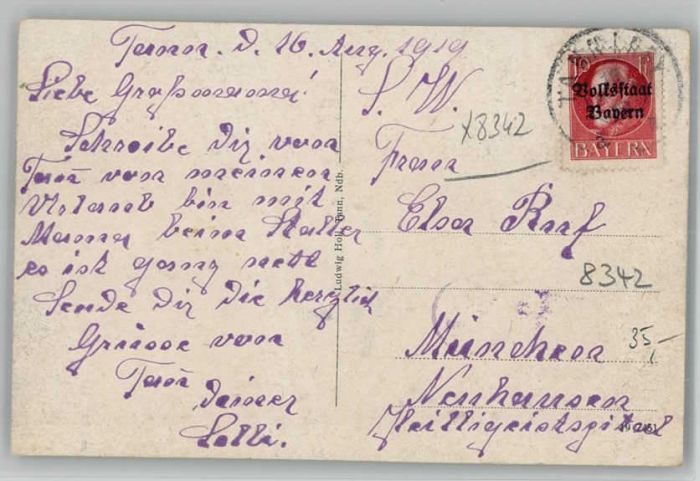 Tann d. 16 Aug. 1919
Liebe Großmama!
Schreibe Dir von
Tann von meinem
Urlaub bin mit
Mama beim Stalter
es ist ganz nett
Sende Dir die herzlich
Grüsse von
Tann
Deiner
Lolli.
S. W.
Frau
Elsa Ruf
München
Neuhausen
Heiliggeistspital
x8342
8342
35,-
Volksstaat
Bayern
BAYERN
10
Ludwig Holl, Tann, Ndb.